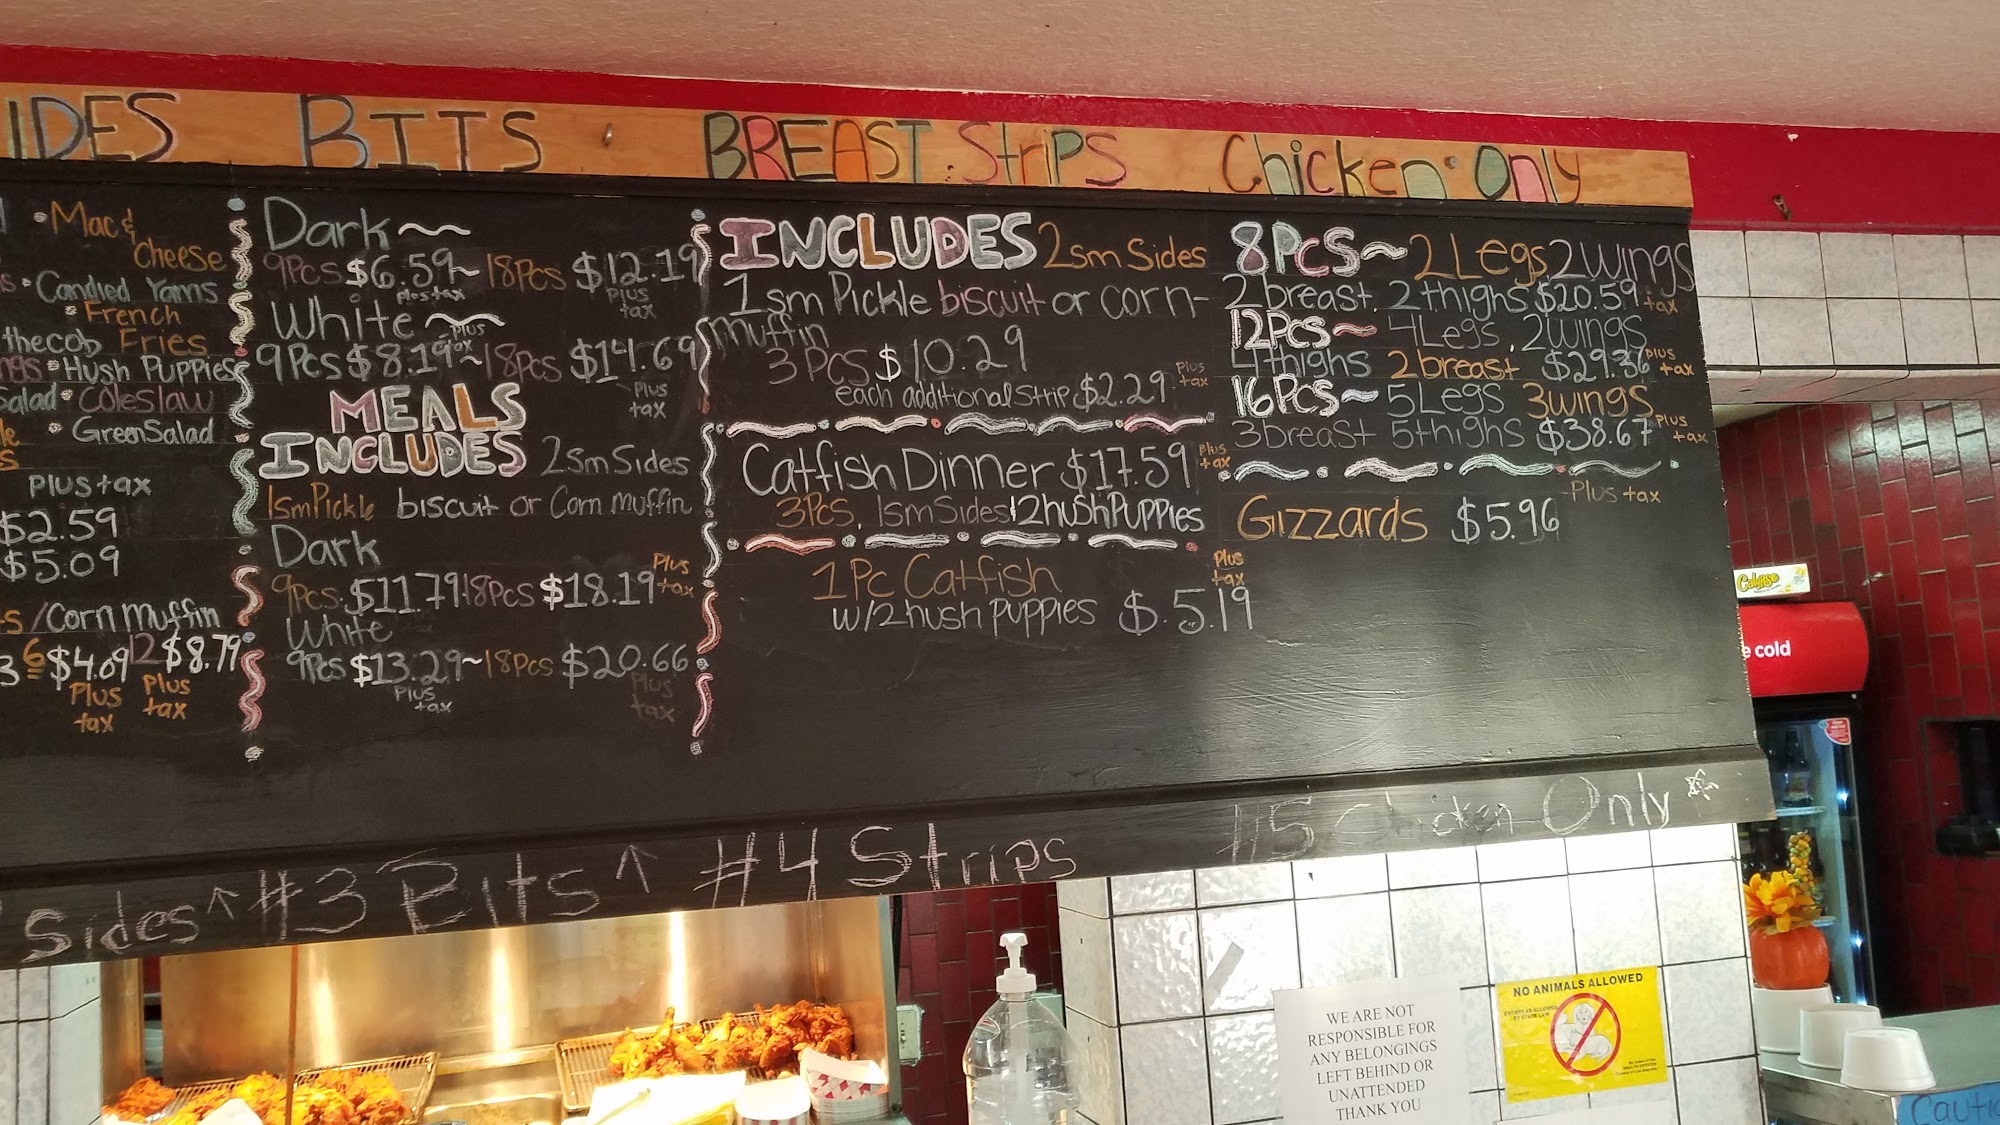 IDES BITS BREAST Strips Chicken Only
• Mac &
Cheese
• Candied Yams
• French
thecob Fries
• Hush Puppies
Salad • Coleslaw
• Green Salad
plus tax
$2.59
$5.09
/Corn muffin
3 6 $4.09 12 $8.79
Plus tax Plus tax
Dark ~
9Pcs $6.59~ 18Pcs $12.19
plus tax plus tax
White ~
plus tax
9Pcs $8.19~18Pcs $14.69
Plus tax
MEALS
INCLUDES 2smSides
1smPickle biscuit or Corn muffin
Dark
Plus tax
9Pcs. $11.79~18Pcs $18.19
White
9Pcs $13.29~18Pcs $20.66
Plus tax Plus tax
INCLUDES 2sm Sides
1sm Pickle biscuit or corn-
muffin
3 PCS $10.29
each additional strip $2.29 plus tax
Catfish Dinner $17.59 plus tax
3Pcs, 1smSides 12hushPuppies
1Pc Catfish Plus tax
w/2hush puppies $.5.19
8PCS~ 2Legs, 2wings
2breast, 2thighs $20.59 + tax
12PCS~ 4Legs, 2wings
4thighs 2breast $29.36 plus + tax
16PCS~ 5Legs 3wings
3breast 5thighs $38.67 Plus + ax
Plus tax
Gizzards $5.96
Sides ↑ #3 Bits ↑ #4 Strips #5 Chicken Only
Calypso
e cold
WE ARE NOT
RESPONSIBLE FOR
ANY BELONGINGS
LEFT BEHIND OR
UNATTENDED
THANK YOU
NO ANIMALS ALLOWED
EXCEPT AS ALLOWED
BY STATE LAW
Cauti